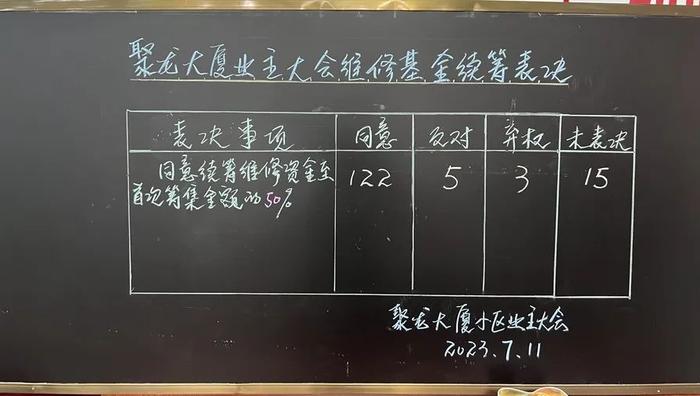 聚龙大厦业主大会维修基金续筹表决
表决事项 同意 反对 弃权 未表决
同意续筹维修资金至 122 5 3 15
首次筹集金额的50%
聚龙大厦小区业主大会
2023.7.11